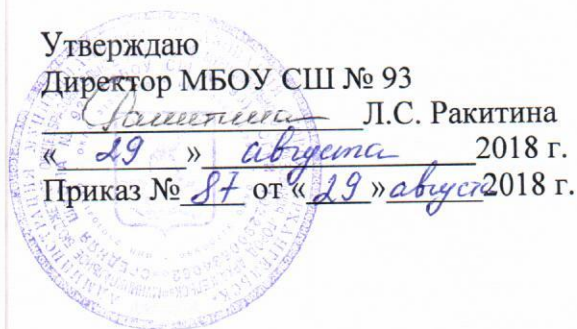 Утверждаю
Директор МБОУ СШ № 93
Л.С. Ракитина
« 29 » августа 2018 г.
Приказ № 87 от « 29 » августа 2018 г.